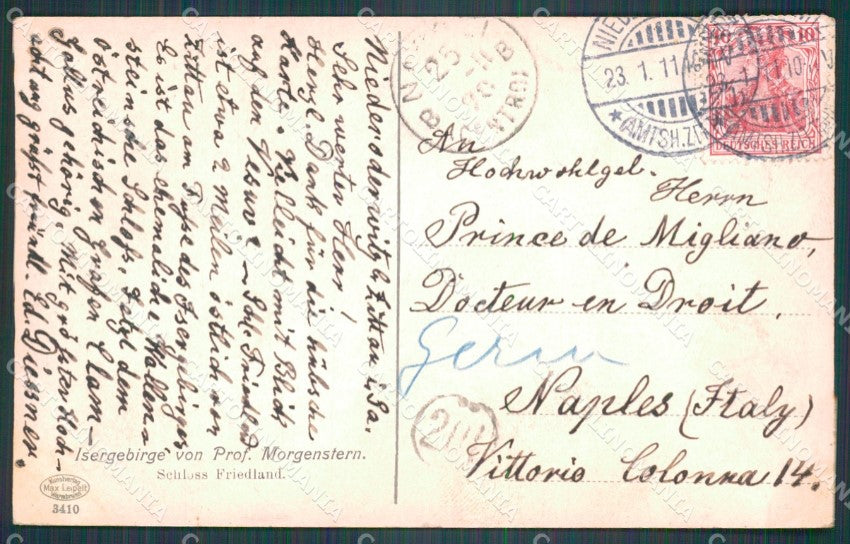 Niederoderwitz b Zittau i/Sa.
Sehr werter Herr!
Herzl. Dank für die hübsche
Karte. Vielleicht mit Blick
auf den Vesuv? — Schl. Friedland
ist etwa 2 Meilen östlich von
Zittau am Fusse des Isergebirges
Es ist das ehemalige Wallen-
steinsche Schloss, jetzt dem
östreichischen Grafen Clam-
Gallus gehörig. Mit größter Hoch-
achtung grüßt freundl. Ed. Diessner.
"Isergebirge" von Prof. Morgenstern.
Schloss Friedland.
Kunstverlag
Max Leipelt
Warmbrunn
3410
25
B
CENTRO
23. 1. 11
*(AMTSH.
10
DEUTSCHES REICH
An
Hochwohlgeb.
Herrn
Prince de Migliano,
Docteur en Droit.
Naples (Italy)
Vittorio Colonna 14.
CARTOLINOMANIA